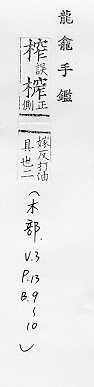 龍龕手鑑
榨誤榨正側
嫁反打油
具也二
(木部.
V.3
P.13
B.9
~
10
)